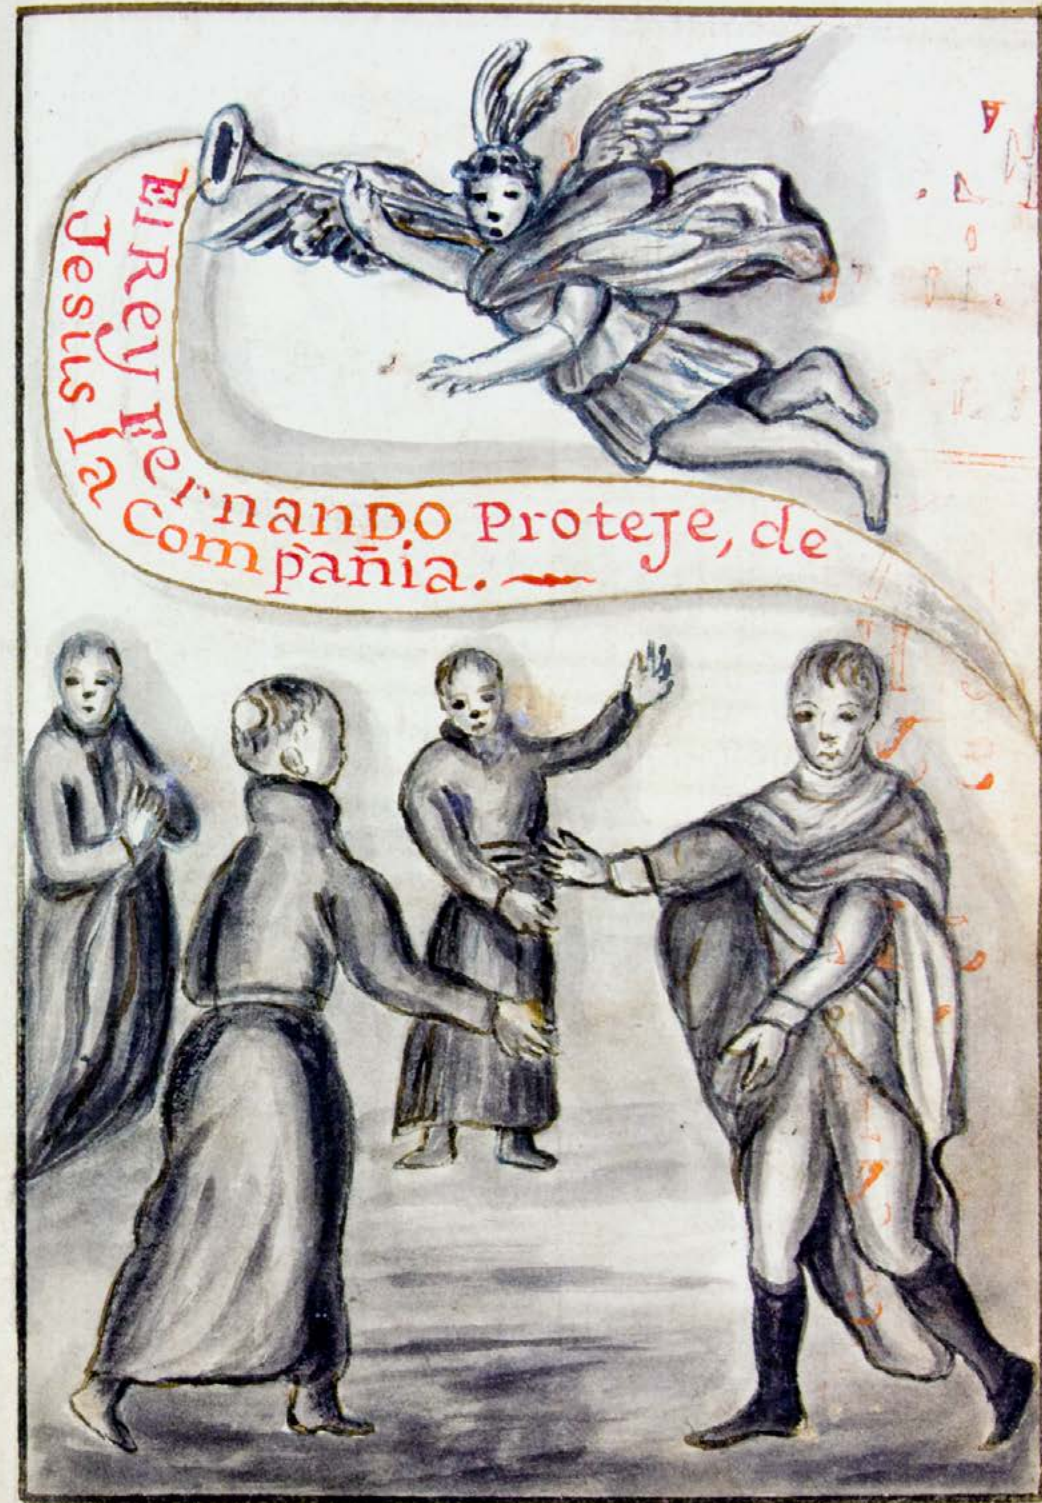 El Rey Fernando Proteje, de
Jesus la Compañia.